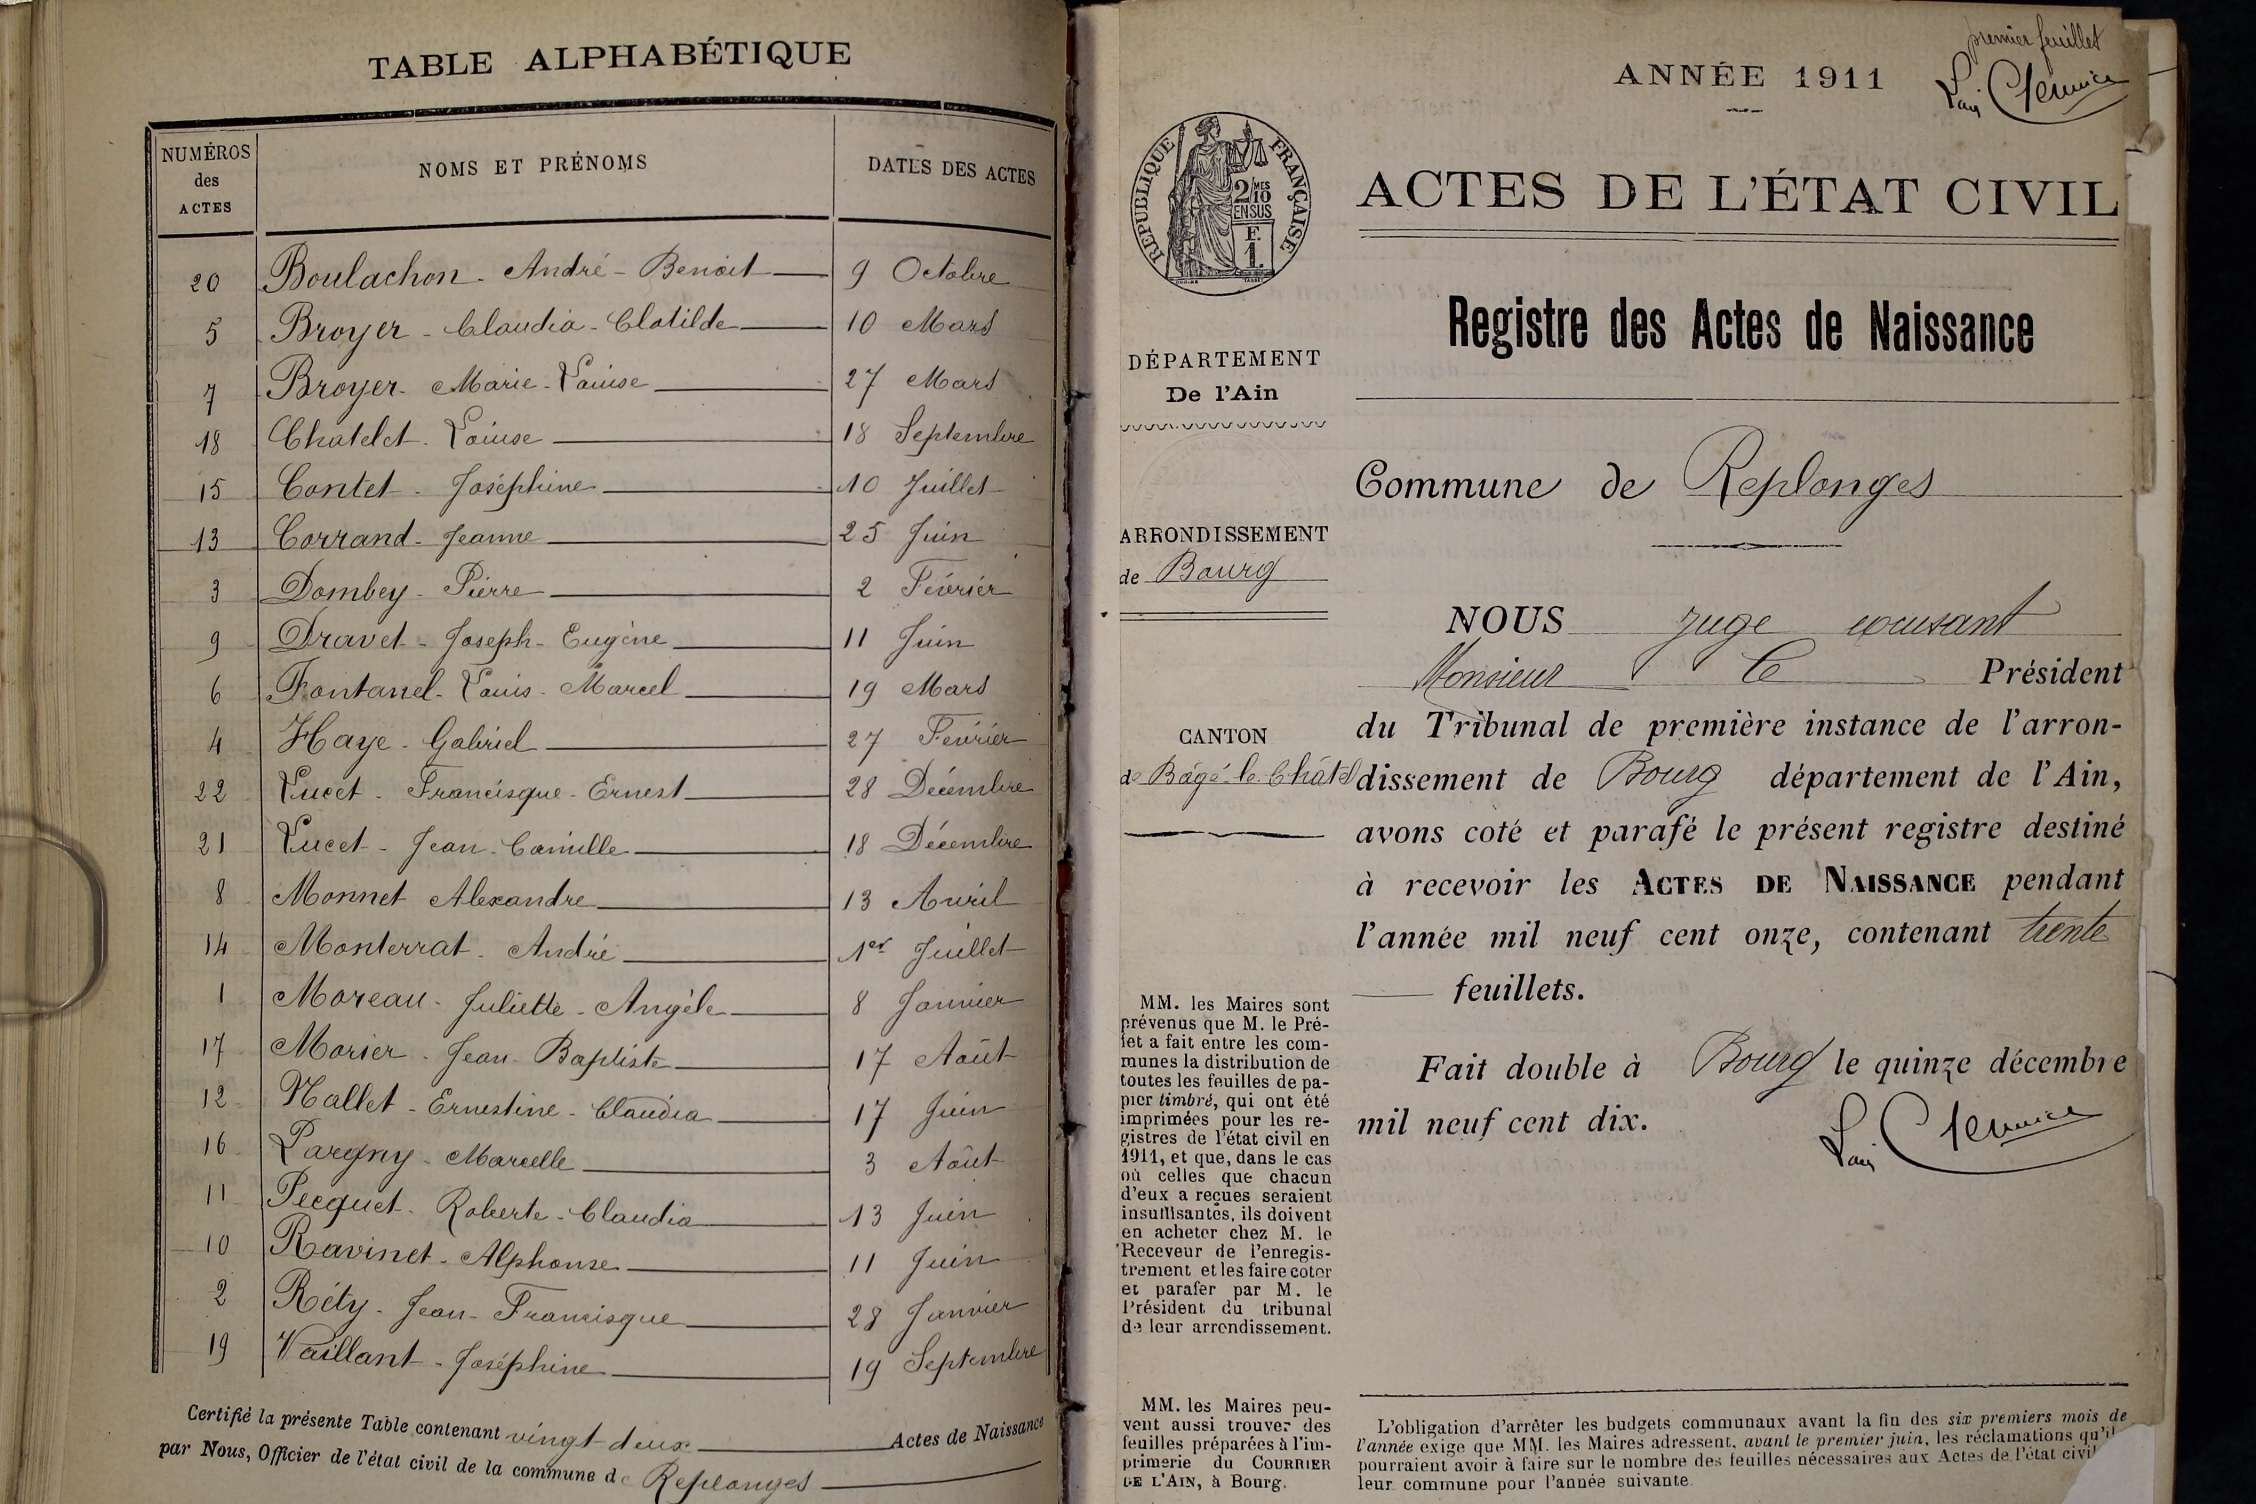 TABLE ALPHABÉTIQUE
NUMÉROS des ACTES NOMS ET PRÉNOMS DATES DES ACTES
20 Boulachon - André - Benoit 9 Octobre
5 Broyer - Claudia - Clotilde 10 Mars
7 Broyer - Marie - Louise 27 Mars
18 Chatelet - Louise 18 Septembre
15 Contet - Joséphine 10 Juillet
13 Corrand - Jeanne 25 Juin
3 Dombey - Pierre 2 Février
9 Dravet - Joseph - Eugène 11 Juin
6 Fontanel - Louis - Marcel 19 Mars
4 Haye - Gabriel 27 Février
22 Lucet - Francisque - Ernest 28 Décembre
21 Lucet - Jean - Camille 18 Décembre
8 Monnet Alexandre 13 Avril
14 Monterrat - André 1er Juillet
1 Moreau - Juliette - Angèle 8 Janvier
17 Morier - Jean - Baptiste 17 Août
12 Nallet - Ernestine - Claudia 17 Juin
16 Pargny - Marcelle 3 Août
11 Pecquet - Roberte - Claudia 13 Juin
10 Ravinet - Alphonse 11 Juin
2 Réty - Jean - Francisque 28 Janvier
19 Vaillant - Joséphine 19 Septembre
Certifié la présente Table contenant vingt deux Actes de Naissance
par Nous, Officier de l'état civil de la commune de Replonges
premier feuillet
ANNÉE 1911
RÉPUBLIQUE FRANÇAISE
2/10 MES
EN SUS
F.
1.
ACTES DE L'ÉTAT CIVIL
Registre des Actes de Naissance
DÉPARTEMENT
De l'Ain
Commune de Replonges
ARRONDISSEMENT
de Bourg
NOUS juge excusant
Monsieur le Président
CANTON
de Bâgé-le-Châtel
du Tribunal de première instance de l'arron-
dissement de Bourg département de l'Ain,
avons coté et parafé le présent registre destiné
à recevoir les ACTES DE NAISSANCE pendant
l'année mil neuf cent onze, contenant trente
feuillets.
Fait double à Bourg le quinze décembre
mil neuf cent dix.
MM. les Maires sont
prévenus que M. le Pré-
fet a fait entre les com-
munes la distribution de
toutes les feuilles de pa-
pier timbré, qui ont été
imprimées pour les re-
gistres de l'état civil en
1911, et que, dans le cas
où celles que chacun
d'eux a reçues seraient
insuffisantes, ils doivent
en acheter chez M. le
Receveur de l'enregis-
trement et les faire coter
et parafer par M. le
Président du tribunal
de leur arrondissement.
MM. les Maires peu-
vent aussi trouver des
feuilles préparées à l'im-
primerie du COURRIER
DE L'AIN, à Bourg.
L'obligation d'arrêter les budgets communaux avant la fin des six premiers mois de
l'année exige que MM. les Maires adressent, avant le premier juin, les réclamations qu'il
pourraient avoir à faire sur le nombre des feuilles nécessaires aux Actes de l'état civil
leur commune pour l'année suivante.